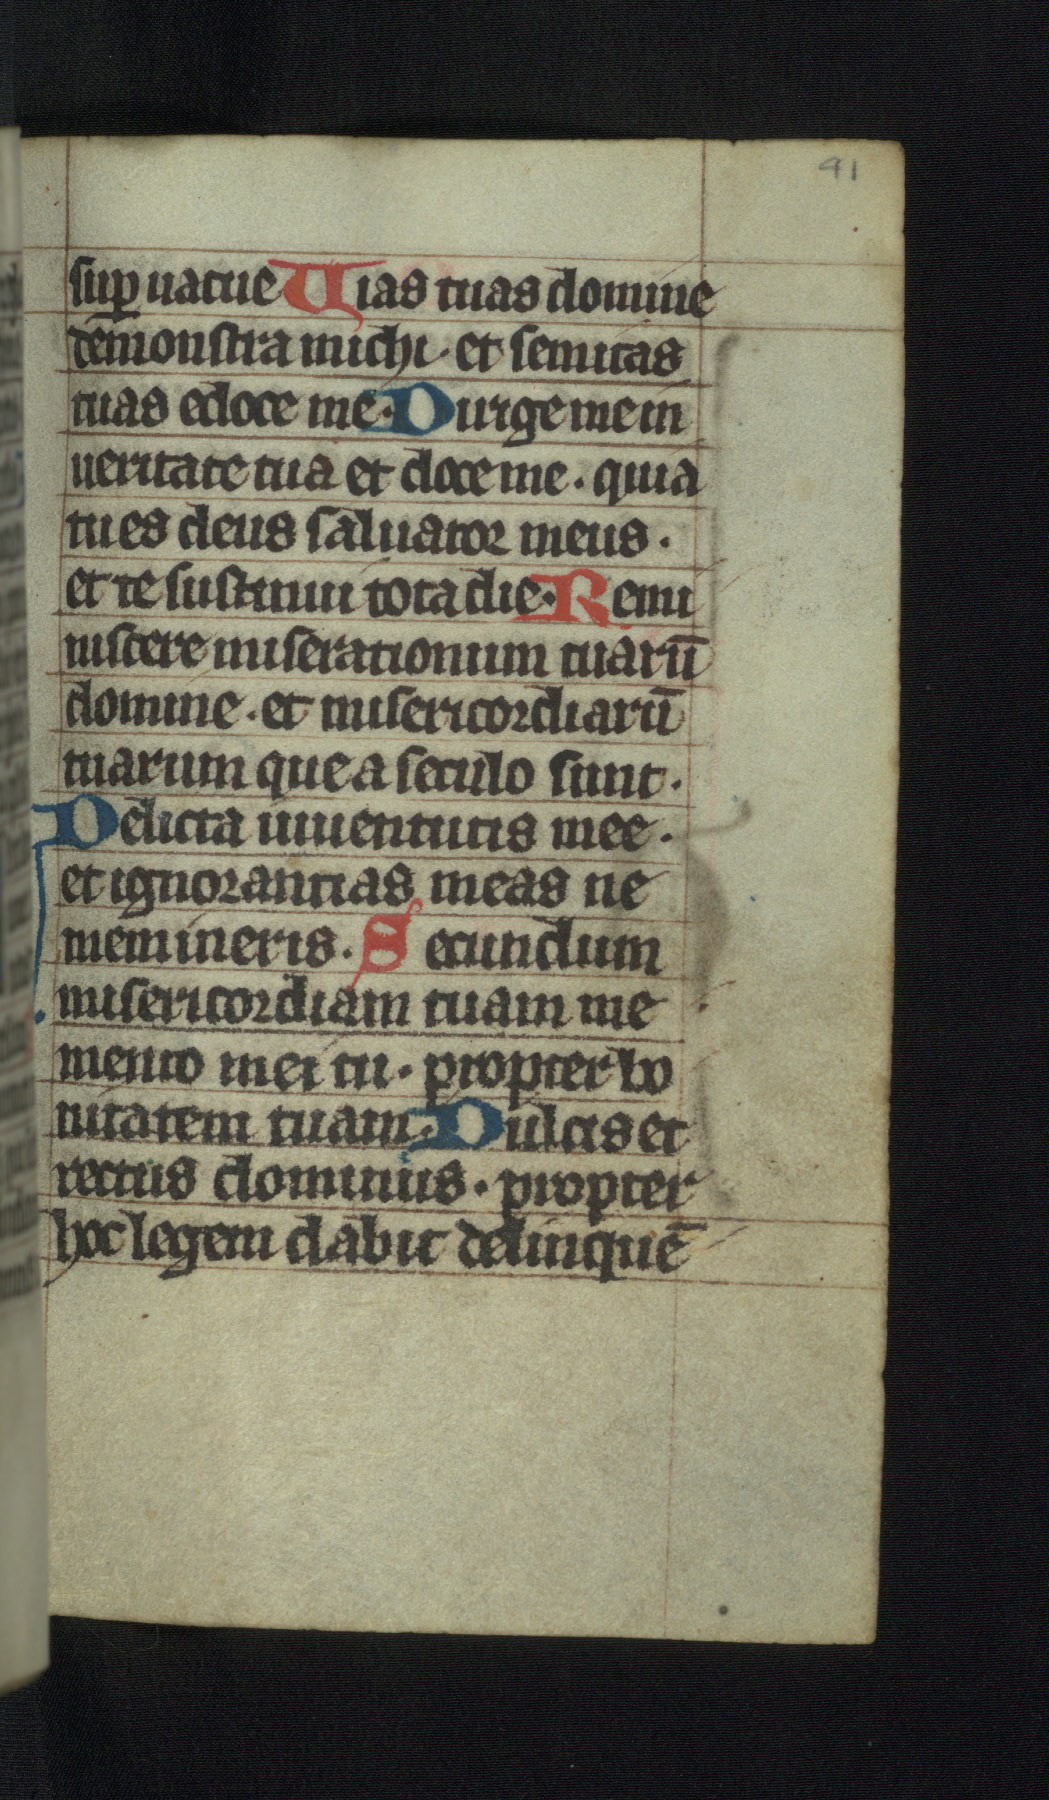 41
suꝑuacue Uias tuas domine
demonstra michi · et semitas
tuas edoce me · Durge me in
ueritate tua et doce me · quia
tu es deus saluator meus ·
et te sustinui tota die · Remi
niscere miserationum tuarū
domine · et misericordiarū
tuarum que a seculo sunt ·
Delicta iuuentutis mee ·
et ignorantias meas ne
memineris · Secundum
misericordiam tuam me
mento mei tu · propter bo
nitatem tuam · Dulcis et
rectus dominus · propter
hoc legem dabit delinquē